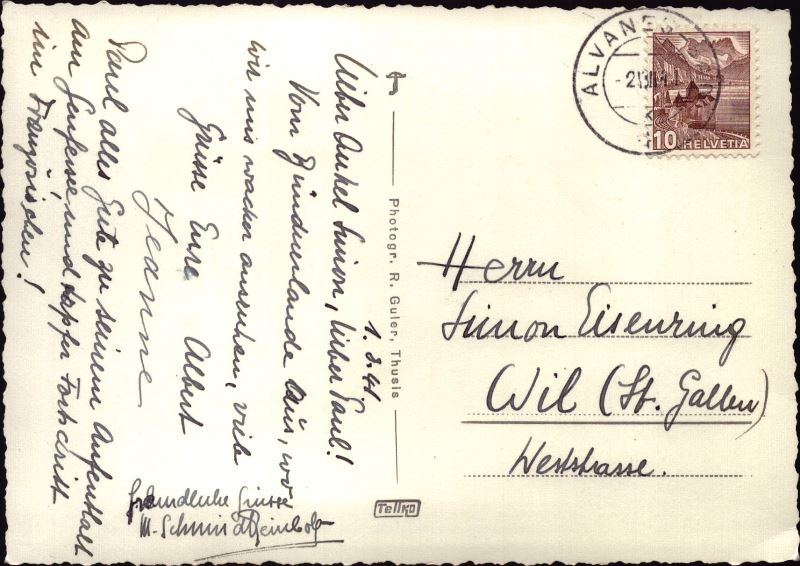 1. 8. 41
Lieber Onkel Simon, lieber Paul!
Vom Bündnerlande aus, wo
wir uns wacker ausruhen, viele
Grüsse Eure Albert
Jeanne
Paul alles Gute zu seinem Aufenthalt
am Genfersee, und tapfer Fortschritt
im Französischen!
freundliche Grüsse
M. Schmid
Photogr. R. Guler, Thusis
Tellko
ALVANEU
10 HELVETIA
Herrn
Simon Eisenring
Wil (St. Gallen)
Weststrasse.